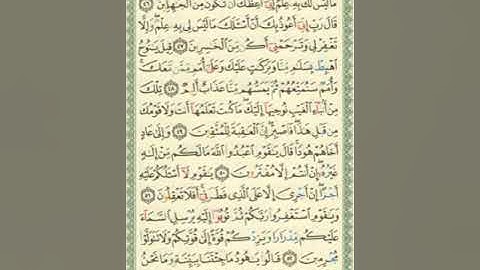 مَا لَيْسَ لَكَ بِهِۦ عِلْمٌ إِنِّىٓ أَعِظُكَ أَن تَكُونَ مِنَ ٱلْجَٰهِلِينَ ٤٦
قَالَ رَبِّ إِنِّىٓ أَعُوذُ بِكَ أَنْ أَسْـَٔلَكَ مَا لَيْسَ لِى بِهِۦ عِلْمٌ وَإِلَّا
تَغْفِرْ لِى وَتَرْحَمْنِىٓ أَكُن مِّنَ ٱلْخَٰسِرِينَ ٤٧ قِيلَ يَٰنُوحُ
ٱهْبِطْ بِسَلَٰمٍ مِّنَّا وَبَرَكَٰتٍ عَلَيْكَ وَعَلَىٰٓ أُمَمٍ مِّمَّن مَّعَكَ
وَأُمَمٌ سَنُمَتِّعُهُمْ ثُمَّ يَمَسُّهُم مِّنَّا عَذَابٌ أَلِيمٌ ٤٨ تِلْكَ
مِنْ أَنۢبَآءِ ٱلْغَيْبِ نُوحِيهَآ إِلَيْكَ مَا كُنتَ تَعْلَمُهَآ أَنتَ وَلَا قَوْمُكَ
مِن قَبْلِ هَٰذَا فَٱصْبِرْ إِنَّ ٱلْعَٰقِبَةَ لِلْمُتَّقِينَ ٤٩ وَإِلَىٰ عَادٍ
أَخَاهُمْ هُودًا قَالَ يَٰقَوْمِ ٱعْبُدُوا۟ ٱللَّهَ مَا لَكُم مِّنْ إِلَٰهٍ
غَيْرُهُۥٓ إِنْ أَنتُمْ إِلَّا مُفْتَرُونَ ٥٠ يَٰقَوْمِ لَآ أَسْـَٔلُكُمْ عَلَيْهِ
أَجْرًا إِنْ أَجْرِىَ إِلَّا عَلَى ٱلَّذِى فَطَرَنِىٓ أَفَلَا تَعْقِلُونَ ٥١
وَيَٰقَوْمِ ٱسْتَغْفِرُوا۟ رَبَّكُمْ ثُمَّ تُوبُوٓا۟ إِلَيْهِ يُرْسِلِ ٱلسَّمَآءَ
عَلَيْكُم مِّدْرَارًا وَيَزِدْكُمْ قُوَّةً إِلَىٰ قُوَّتِكُمْ وَلَا تَتَوَلَّوْا۟
مُجْرِمِينَ ٥٢ قَالُوا۟ يَٰهُودُ مَا جِئْتَنَا بِبَيِّنَةٍ وَمَا نَحْنُ